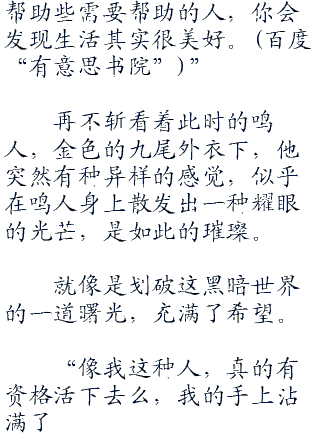 帮助些需要帮助的人，你会
发现生活其实很美好。(百度
“有意思书院”)”
再不斩看着此时的鸣
人，金色的九尾外衣下，他
突然有种异样的感觉，似乎
在鸣人身上散发出一种耀眼
的光芒，是如此的璀璨。
就像是划破这黑暗世界
的一道曙光，充满了希望。
“像我这种人，真的有
资格活下去么，我的手上沾
满了